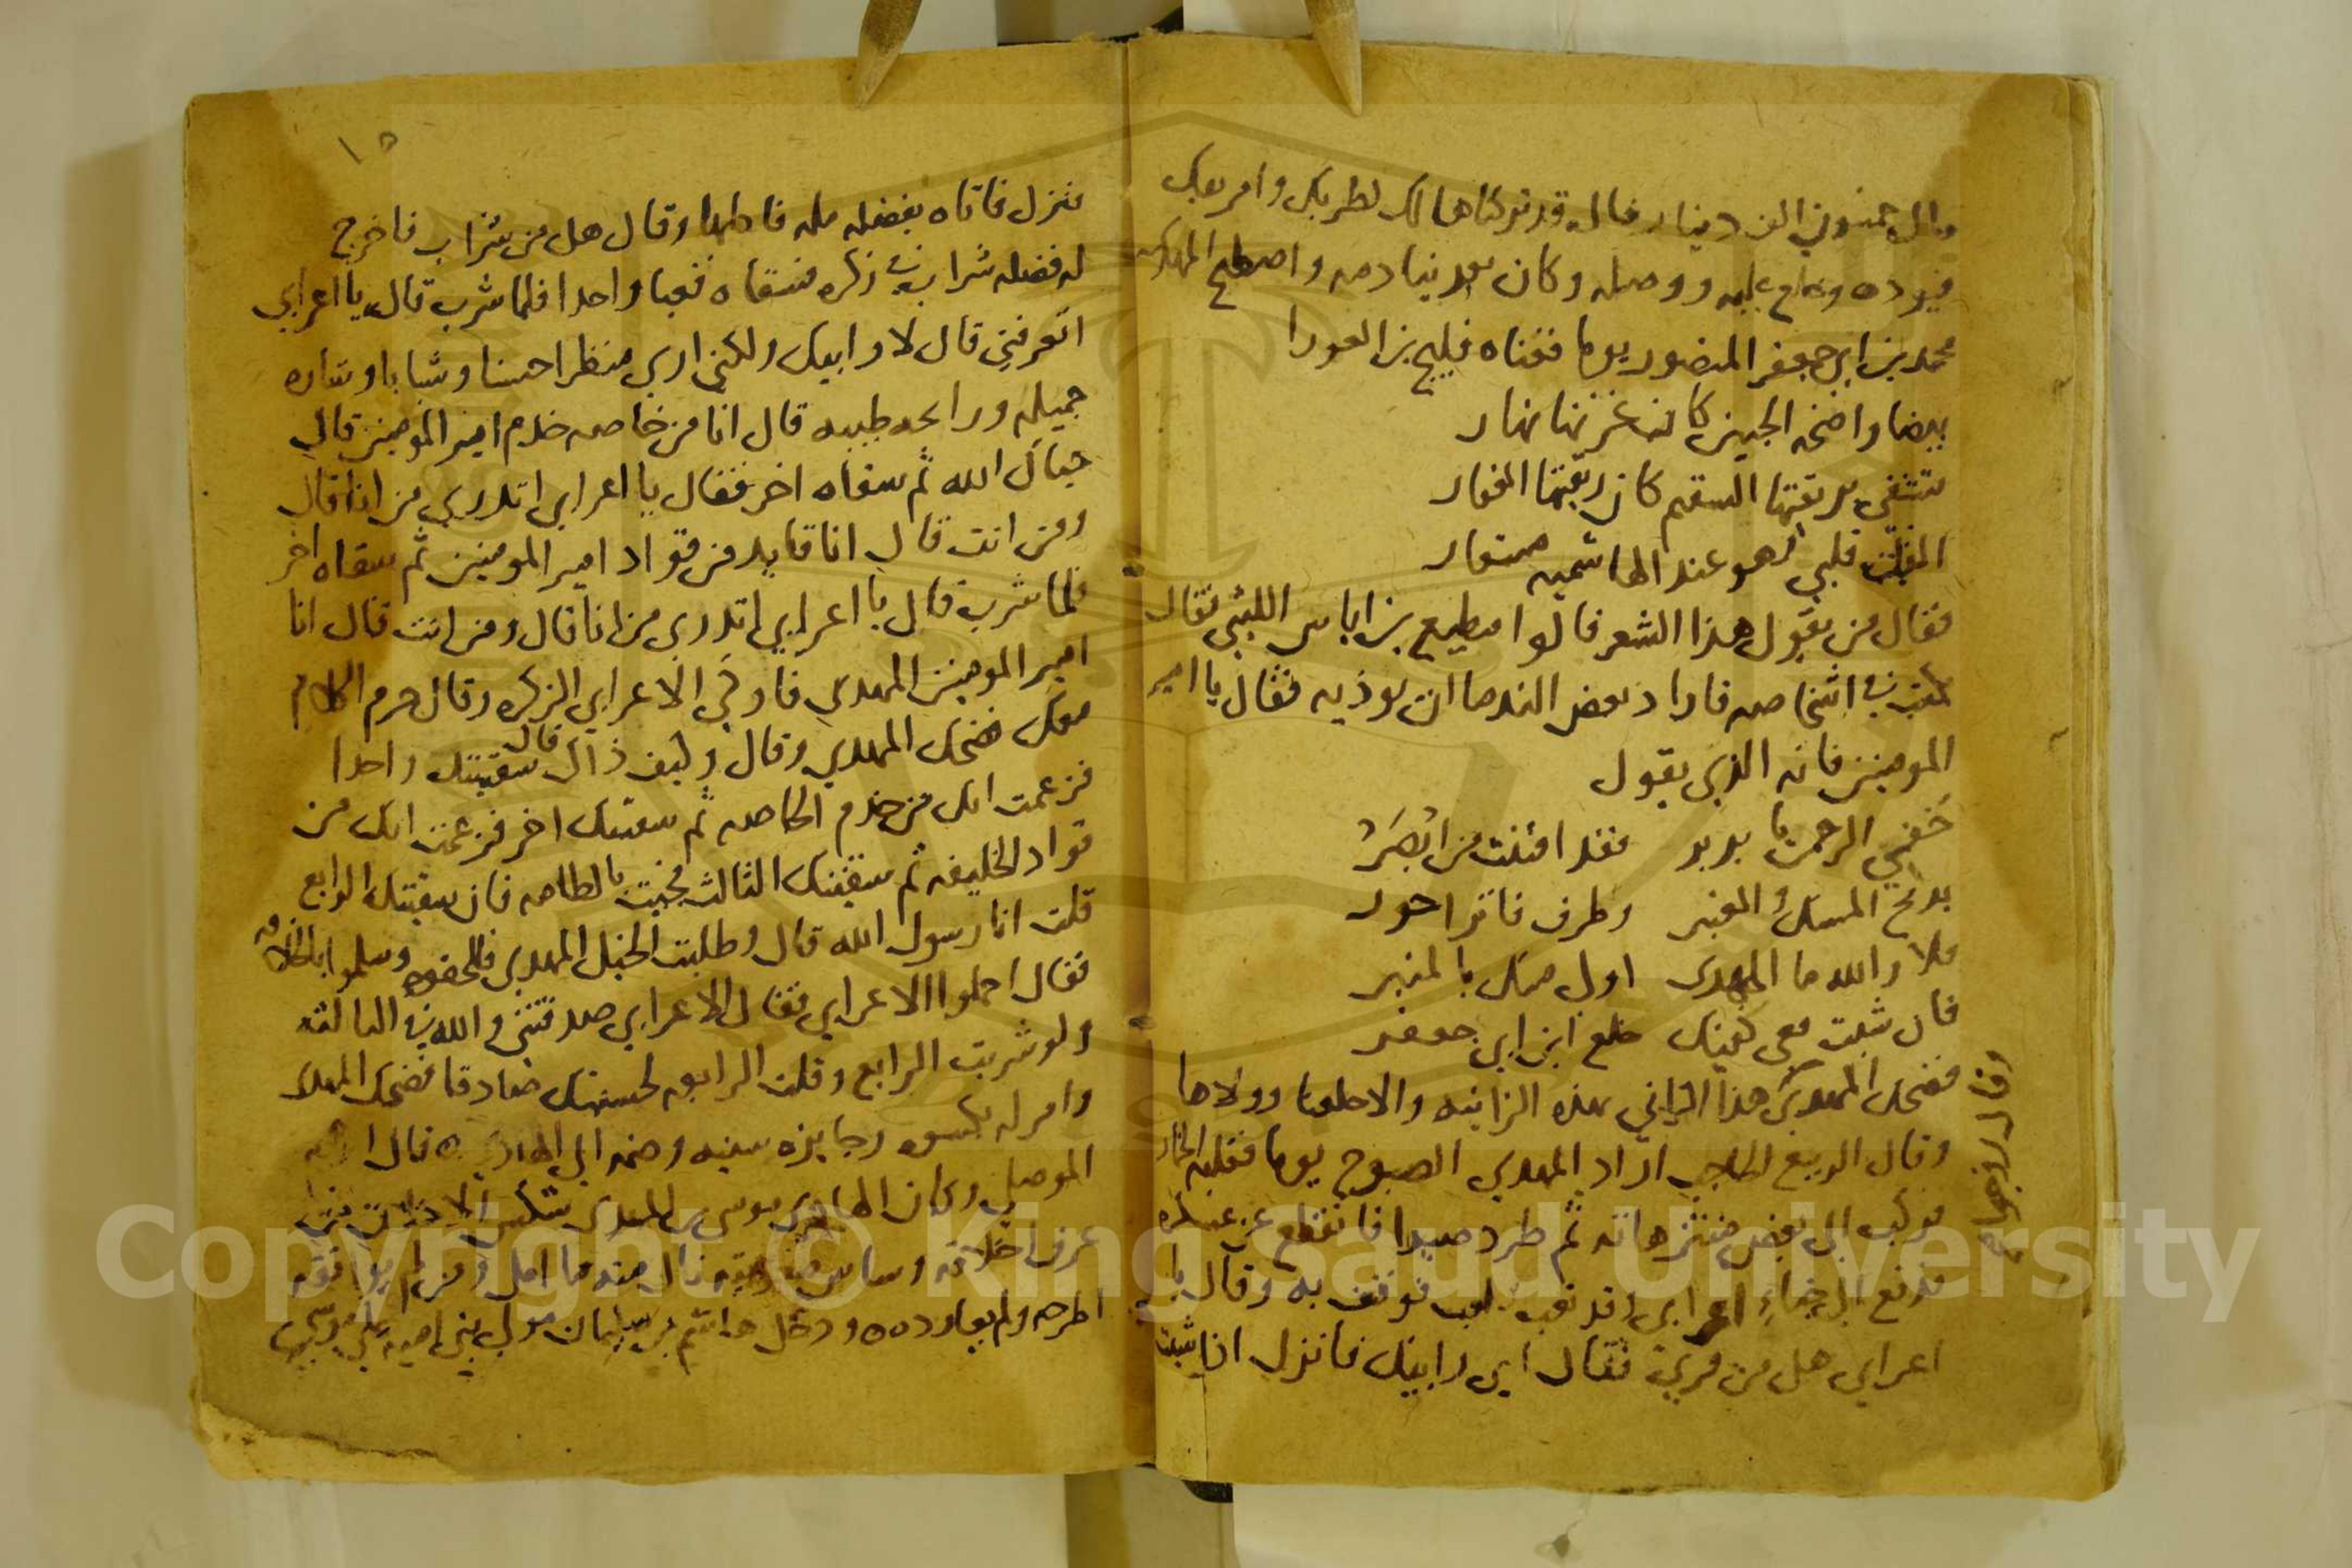 قال خمسون الف دينار فقال قد تركناها لك لطربك وامر بعك
فيرده وخلع عليه ووصله وكان بعد ينادمه واصطبح المهدي
محمد بن ابي جعفر المنصور يوما فغناه فليح بن العورا
بيضا واضحة الجبين كان غرتها نهار
تشفي بريقتها السقيم كان ريقتها العقار
قلبي وهو عند الهاشميه مستعار
فقال من يقول هذا الشعر قالوا مطيع بن اياس الليثي فقال
في اشخاصه فاراد بعض الندما ان يوذيه فقال يا امير
المومنين فانه الذي يقول
خفي الرحمن يا بربر فقد افتنت من ابصر
بريح المسك والعنبر وطرف فاتر احور
فلا والله ما المهدي اولى منك بالمنبر
فان شيت ففي كفيك خلع ابن ابي جعفر
فضحك المهدي هذا الزاني بهذه الزانيه والاخلعنا وولاها
وقال الربيع الحاجب اراد المهدي الصبوح يوما فقلبه الخمار
فركب الى بعض منتزهاته ثم طرد صيدا فانقطع عن عسكره
فدفع الى خباء اعرابي وقد تعب فوقف به وقال يا
اعرابي هل من قرى فقال اي وابيك فانزل ان شيت
وقال اجمعوا
منه
١٥
فنزل فاتاه بفضله مله فاكلها وقال هل من شراب فاخرج
له فضله شراب في زكره فسقاه قعبا واحدا فلما شرب قال يا اعرابي
اتعرفني قال لا وابيك ولكني اري منظرا حسنا وشبابا وشاره
جميله ورايحه طيبه قال انا من خاصه خدم امير المومنين قال
حياك الله ثم سقاه اخر فقال يا اعرابي اتدري من انا قال
ومن انت قال انا قايد من قواد امير المومنين ثم سقاه اخر
فلما شرب قال يا اعرابي اتدري من انا قال ومن انت قال انا
امير المومنين المهدي فاوكى الاعرابي الزكره وقال حرم الكلام
معك فضحك المهدي وقال وكيف ذاك قال سقيتك واحدا
فزعمت انك من خدم الخاصه ثم سقيتك اخر فزعمت انك من
قواد الخليفه ثم سقيتك الثالث فجيت بالطامه فان سقيتك الرابع
قلت انا رسول الله قال وطلبت الخيل المهدي فلحقوه وسلموا بالخلافه
فقال احملوا الاعرابي فقال الاعرابي صدقتني والله في الثالثه
ولو شربت الرابع وقلت الرابعه لحسبتك صادقا فضحك المهدي
وامر له بكسوه وجايزه سنيه وضمه الى الهادي ه قال
الموصلي وكان الهادي موسى بن المهدي شكس الاخلاق فمن
عرف اخلاقه وساس نال منه ما امل ومن لم يوافقه
اطرحه ولم يعاوده ودخل هاشم بن سليمان مولى بني اميه على موسى
Copyright © King Saud University